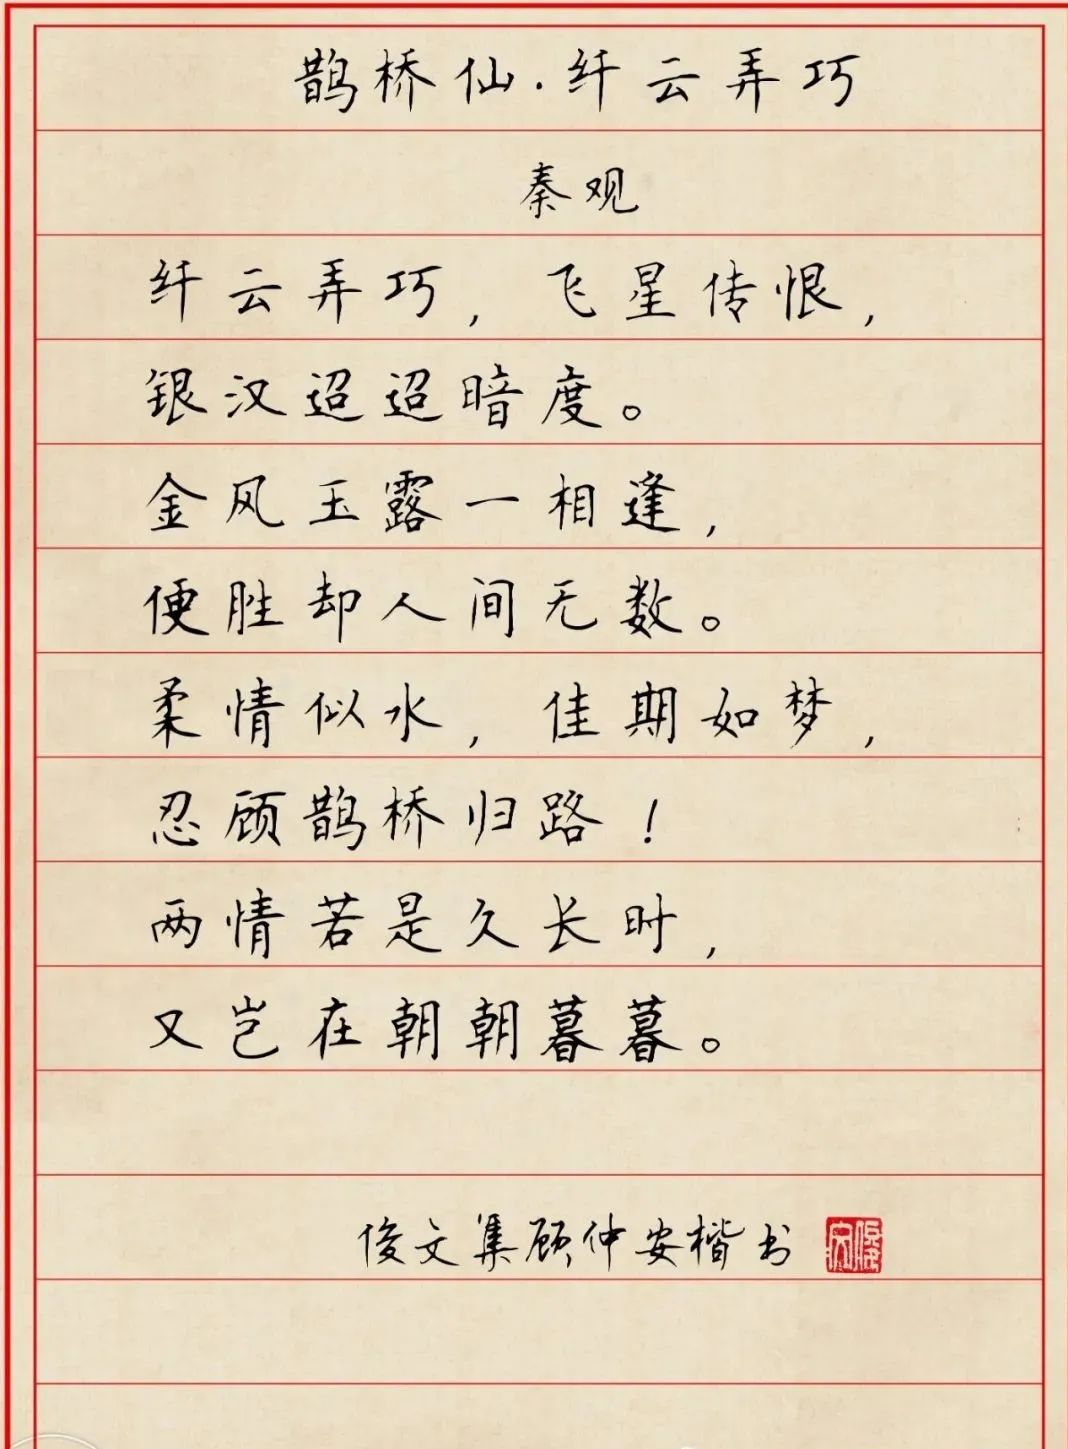 鹊桥仙·纤云弄巧
秦观
纤云弄巧，飞星传恨，
银汉迢迢暗度。
金风玉露一相逢，
便胜却人间无数。
柔情似水，佳期如梦，
忍顾鹊桥归路！
两情若是久长时，
又岂在朝朝暮暮。
俊文集顾仲安楷书